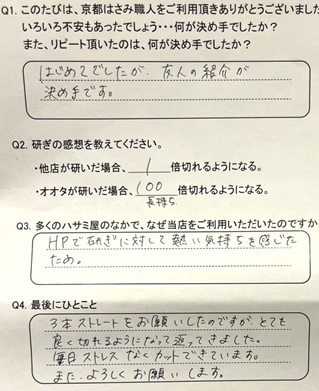 Q1. このたびは、京都はさみ職人をご利用頂きありがとうございました
いろいろ不安もあったでしょう・・・何が決め手でしたか？
また、リピート頂いたのは、何が決め手でしたか？
はじめてでしたが、友人の紹介が
決め手です。
Q2. 研ぎの感想を教えてください。
・他店が研いだ場合、 1 倍切れるようになる。
・オオタが研いだ場合、 100 倍切れるようになる。
長持ち
Q3. 多くのハサミ屋のなかで、なぜ当店をご利用いただいたのですか
HPで研ぎに対して熱い気持ちを感じた
ため。
Q4. 最後にひとこと
3本ストレートをお願いしたのですが、とても
良く切れるようになって返ってきました。
毎日ストレスなくカットできています。
また、よろしくお願いします。